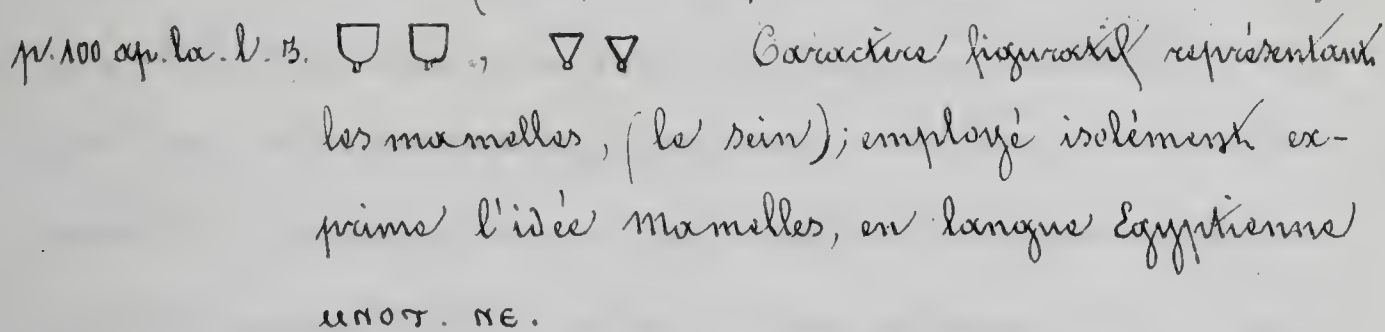 p. 100 ap. la. l. 3. , Caractère figuratif représentant
les mamelles, (le sein); employé isolément ex-
prime l'idée Mamelles, en langue Egyptienne
ⲙⲛⲟⲧ. ⲛⲉ.